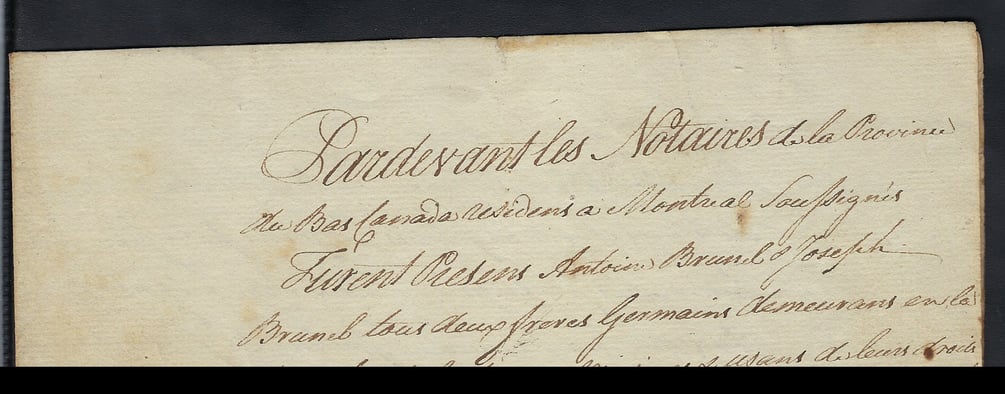 Pardevant les Notaires de la Province
du Bas Canada residens a Montreal Soussignés
Furent Presens Antoine Brunel & Joseph
Brunel tous deux freres Germains demeurans en la
usans de leurs droits